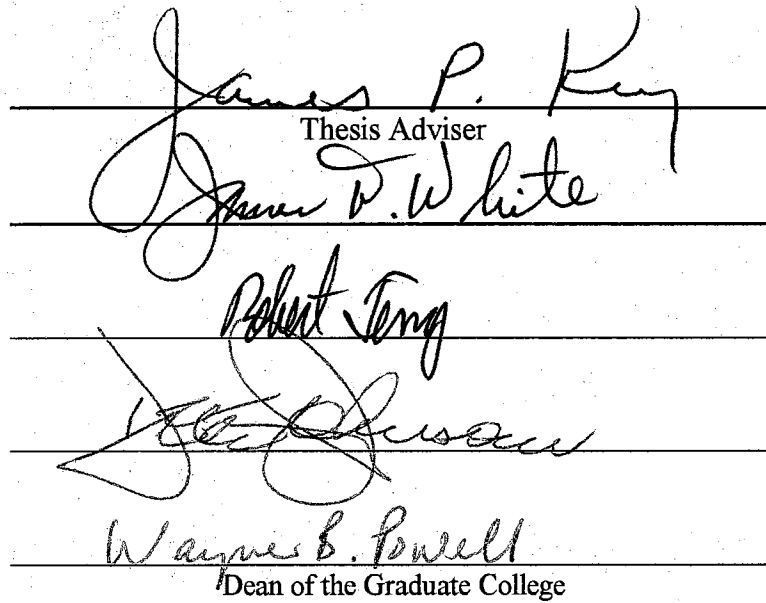 James P. Key
Thesis Adviser
James D. White
Robert Terry
Johnson
Wayne B. Powell
Dean of the Graduate College